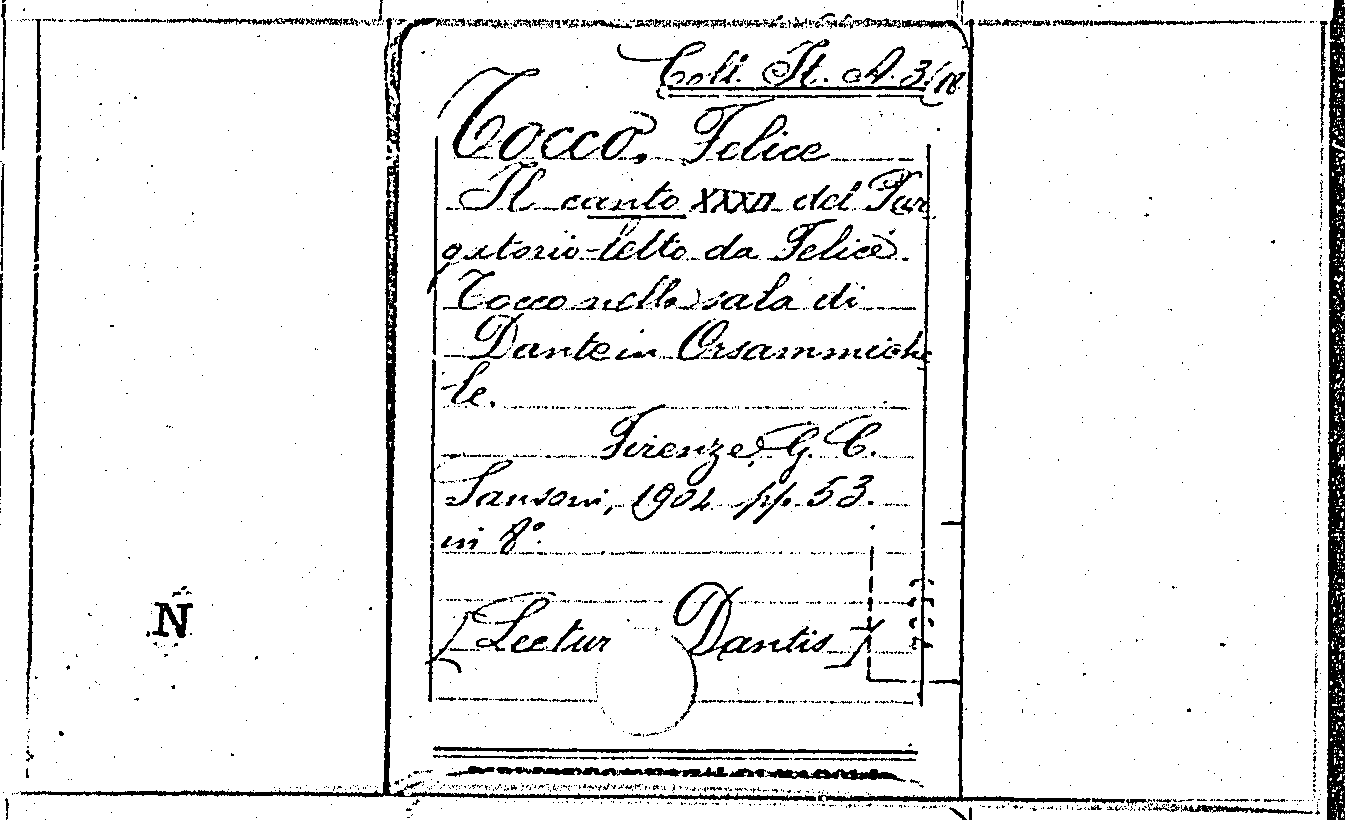 Coll. It. A. 3/18
Tocco, Felice
Il canto XXXII del Pur
gatorio letto da Felice
Tocco nella sala di
Dante in Orsammiche
le.
Firenze, G. C.
Sansoni, 1904 pp. 53.
in 8°.
[Lectur Dantis]
N